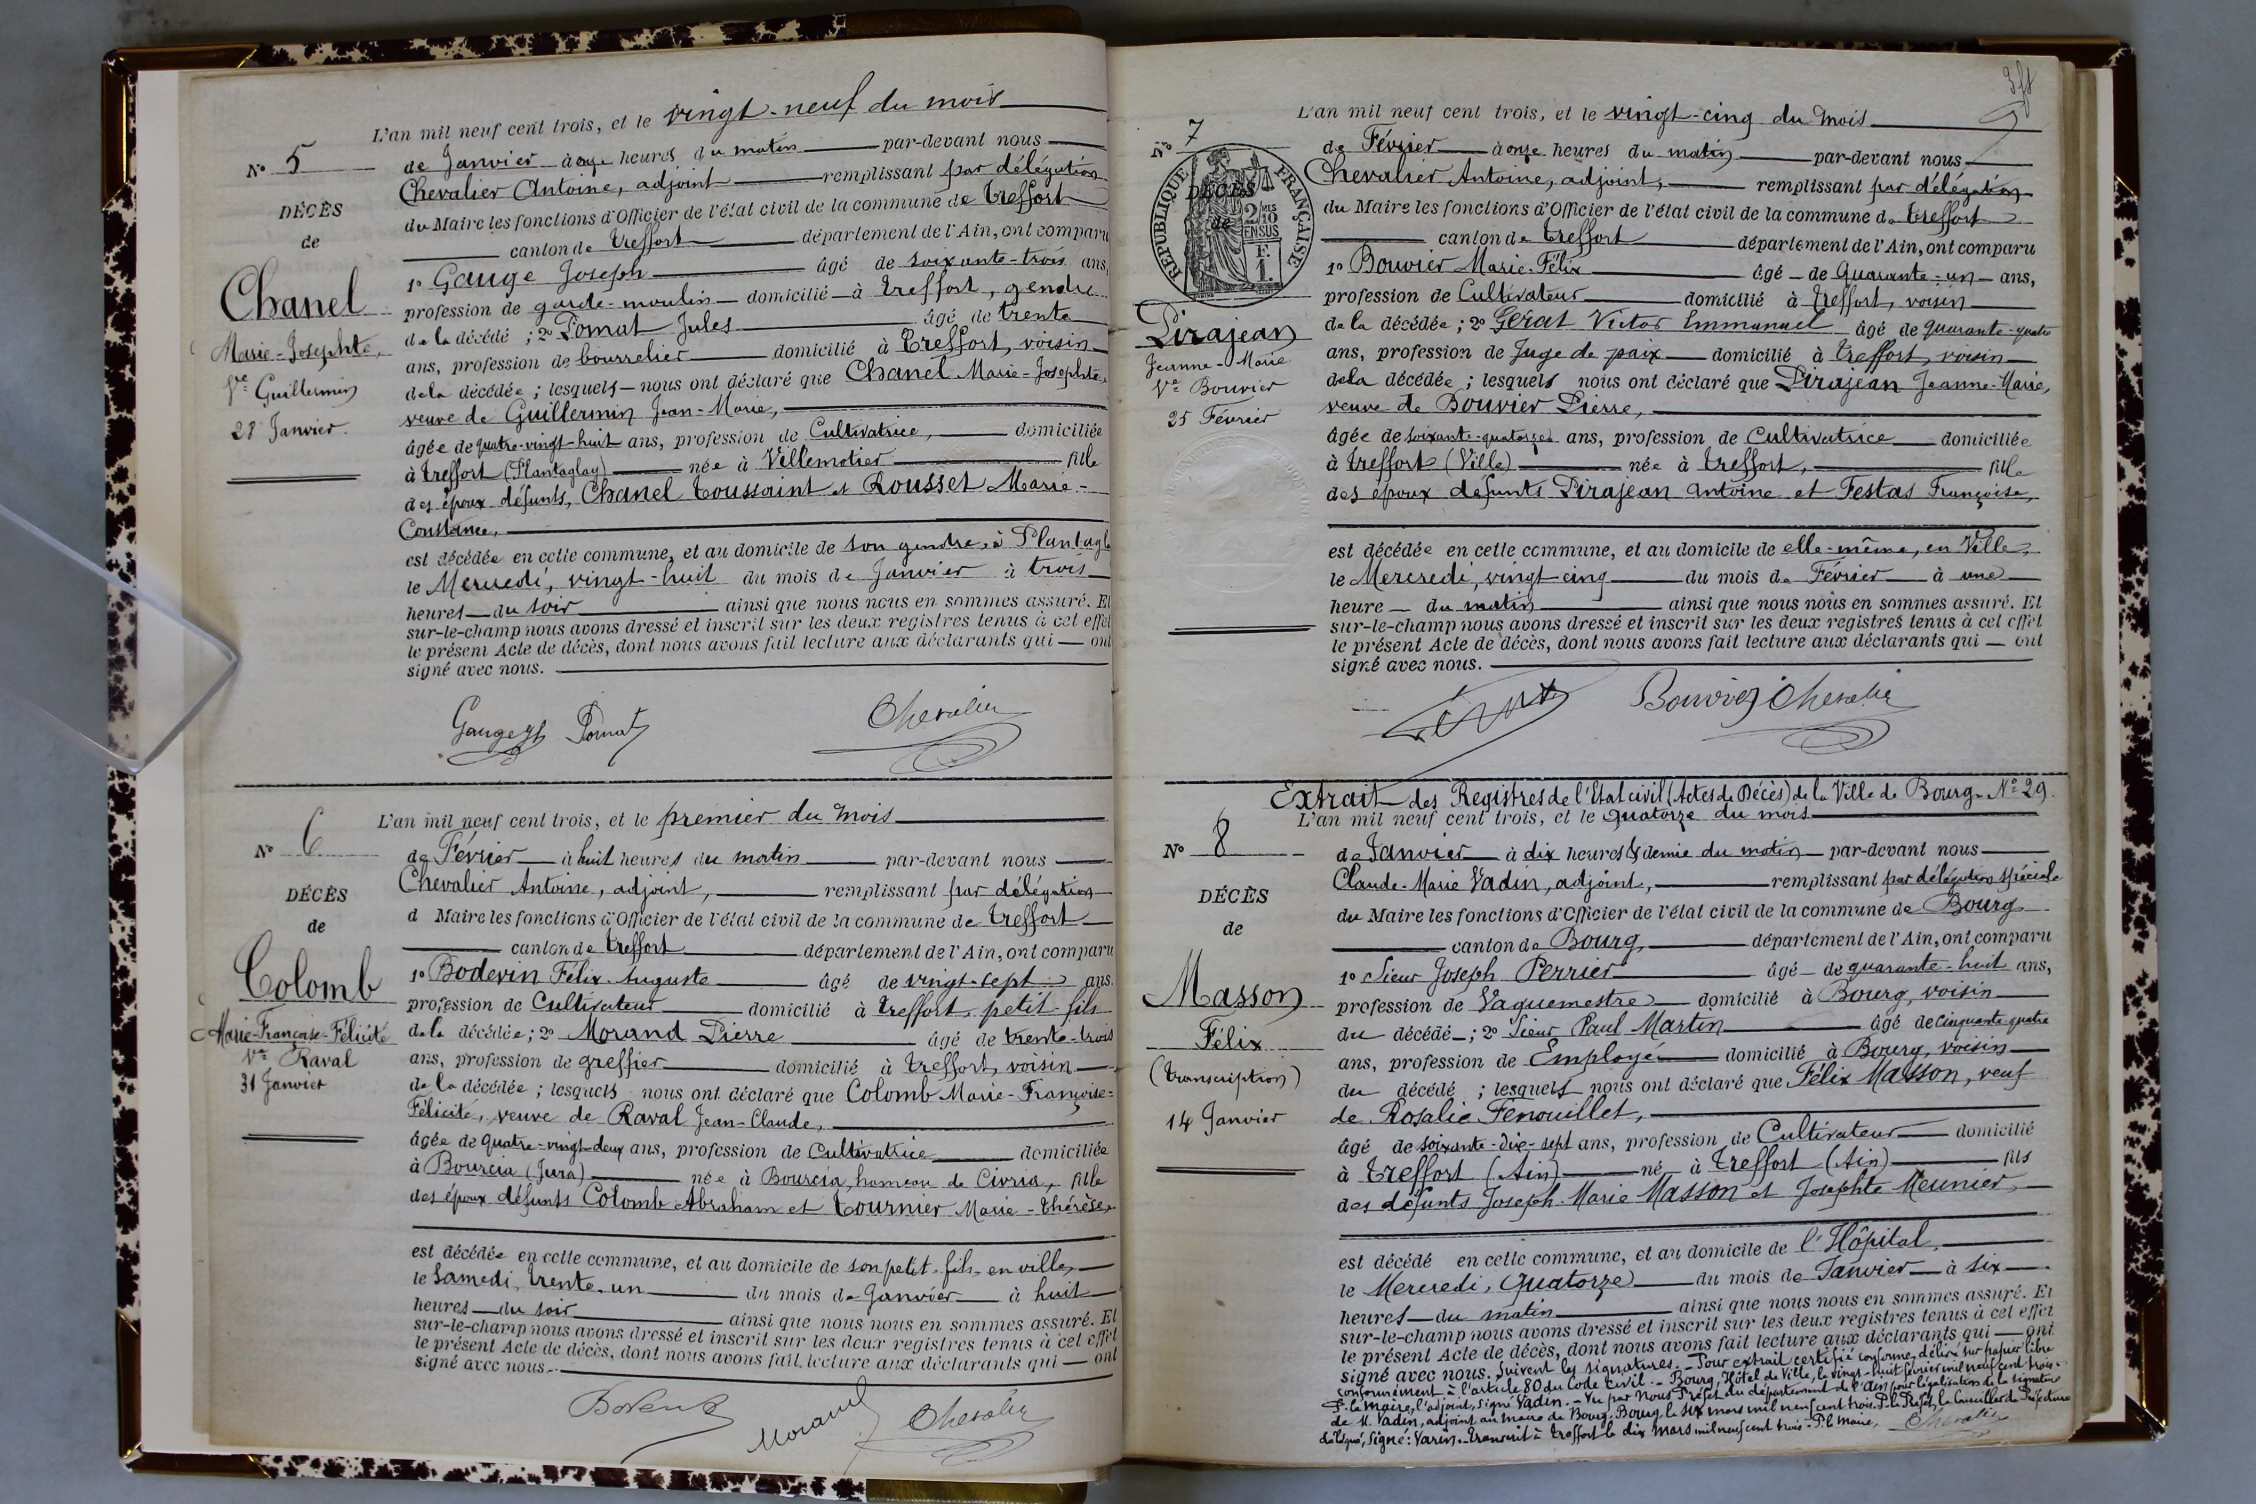 L'an mil neuf cent trois, et le vingt-neuf du mois
N° 5
de Janvier à onze heures du matin par-devant nous
Chevalier Antoine, adjoint remplissant par délégation
DÉCÈS
du Maire les fonctions d'Officier de l'état civil de la commune de Treffort
de
canton de Treffort département de l'Ain, ont comparu
Chanel
1° Gauge Joseph âgé de soixante-trois ans,
profession de garde-moulin domicilié à Treffort, gendre
Marie-Josephte,
de la décédé ; 2° Pomat Jules âgé de trente
ans, profession de bourrelier domicilié à Treffort, voisin
Ve Guillermin
de la décédée ; lesquels nous ont déclaré que Chanel Marie-Josephte,
28 Janvier.
veuve de Guillermin Jean-Marie,
âgée de quatre-vingt-huit ans, profession de Cultivatrice, domiciliée
à Treffort (Plantaglay) née à Villemotier fille
des époux défunts, Chanel Toussaint et Rousset Marie-
Constance,
est décédée en cette commune, et au domicile de son gendre, à Plantagl
le Mercredi, vingt-huit du mois de Janvier à trois
heures du soir ainsi que nous nous en sommes assuré. Et
sur-le-champ nous avons dressé et inscrit sur les deux registres tenus à cet effet
le présent Acte de décès, dont nous avons fait lecture aux déclarants qui ont
signé avec nous.
Gauge Pomat Chevalier
L'an mil neuf cent trois, et le premier du mois
N° 6
de Février à huit heures du matin par-devant nous
Chevalier Antoine, adjoint, remplissant par délégation
DÉCÈS
d Maire les fonctions d'Officier de l'état civil de la commune de Treffort
de
canton de Treffort département de l'Ain, ont comparu
Colomb
1° Bodevin Félix Auguste âgé de vingt-sept ans.
profession de Cultivateur domicilié à Treffort, petit-fils
Marie-Françoise-Félicité
de la décédée ; 2° Morand Pierre âgé de trente-trois
Ve Raval
ans, profession de greffier domicilié à Treffort, voisin
31 Janvier
de la décédée ; lesquels nous ont déclaré que Colomb Marie-Françoise-
Félicité, veuve de Raval Jean-Claude,
âgée de quatre-vingt-deux ans, profession de Cultivatrice domiciliée
à Bourcia (Jura) née à Bourcia, hameau de Civria, fille
des époux défunts Colomb Abraham et Tournier Marie-Thérèse,
est décédée en cette commune, et au domicile de son petit-fils, en ville,
le Samedi, trente-un du mois de Janvier à huit
heures du soir ainsi que nous nous en sommes assuré. Et
sur-le-champ nous avons dressé et inscrit sur les deux registres tenus à cet effet
le présent Acte de décès, dont nous avons fait lecture aux déclarants qui ont
signé avec nous.
Morand Chevalier
L'an mil neuf cent trois, et le vingt-cinq du mois
N° 7
de Février à onze heures du matin par-devant nous
Chevalier Antoine, adjoint, remplissant par délégation
DÉCÈS
de
RÉPUBLIQUE FRANÇAISE
2/10 EN SUS
F. 1.
du Maire les fonctions d'Officier de l'état civil de la commune de Treffort
canton de Treffort département de l'Ain, ont comparu
1° Bouvier Marie-Félix âgé de Quarante-un ans,
profession de Cultivateur domicilié à Treffort, voisin
Pirajean
de la décédée ; 2° Gérat Victor Emmanuel âgé de quarante-quatre
Jeanne-Marie
ans, profession de Juge de paix domicilié à Treffort, voisin
Ve Bouvier
de la décédée ; lesquels nous ont déclaré que Pirajean Jeanne-Marie,
25 Février
veuve de Bouvier Pierre,
âgée de soixante-quatorze ans, profession de Cultivatrice domiciliée
à Treffort (Ville) née à Treffort, fille
des époux défunts Pirajean Antoine et Festas Françoise,
est décédée en cette commune, et au domicile de elle-même, en Ville,
le Mercredi, vingt-cinq du mois de Février à une
heure du matin ainsi que nous nous en sommes assuré. Et
sur-le-champ nous avons dressé et inscrit sur les deux registres tenus à cet effet
le présent Acte de décès, dont nous avons fait lecture aux déclarants qui ont
signé avec nous.
Bouvier Chevalier
Extrait des Registres de l'Etat civil (Actes de Décès) de la Ville de Bourg. N° 29.
L'an mil neuf cent trois, et le quatorze du mois
N° 8
de Janvier à dix heures & demie du matin par-devant nous
Claude-Marie Vadin, adjoint, remplissant par délégation spéciale
DÉCÈS
du Maire les fonctions d'Officier de l'état civil de la commune de Bourg
de
canton de Bourg, département de l'Ain, ont comparu
1° Sieur Joseph Perrier âgé de quarante-huit ans,
Masson
profession de Vaguemestre domicilié à Bourg, voisin
Félix
du décédé ; 2° Sieur Paul Martin âgé de cinquante-quatre
ans, profession de Employé domicilié à Bourg, voisin
(transcription)
du décédé ; lesquels nous ont déclaré que Félix Masson, veuf
14 Janvier
de Rosalie Fenouillet,
âgé de soixante-dix-sept ans, profession de Cultivateur domicilié
à Treffort (Ain) né à Treffort (Ain) fils
des défunts Joseph-Marie Masson et Josephte Meunier,
est décédé en cette commune, et au domicile de l'Hôpital,
le Mercredi, Quatorze du mois de Janvier à six
heures du matin ainsi que nous nous en sommes assuré. Et
sur-le-champ nous avons dressé et inscrit sur les deux registres tenus à cet effet
le présent Acte de décès, dont nous avons fait lecture aux déclarants qui ont
signé avec nous. Suivent les signatures. - Pour extrait certifié conforme, délivré sur papier libre
conformément à l'article 80 du Code Civil. - Bourg, Hôtel de Ville, le vingt-huit février mil neuf cent trois.
P. le Maire, l'adjoint, signé Vadin. - Vu par Nous Préfet du département de l'Ain pour légalisation de la signature
de M. Vadin, adjoint au maire de Bourg. Bourg, le six mars mil neuf cent trois. P. le Préfet, le Conseiller de Préfecture
délégué, Signé: Varin. - Transcrit à Treffort le dix mars mil neuf cent trois - P. le Maire, Chevalier